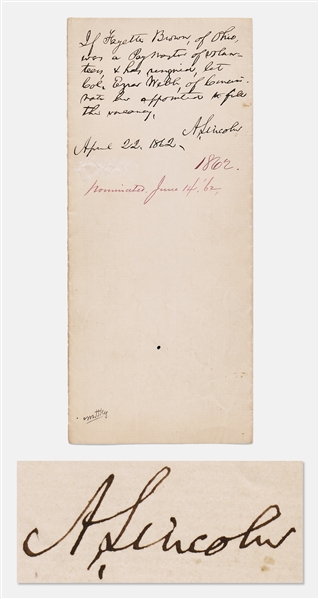 If Fayette Brown, of Ohio,
was a Paymaster of volun-
teers, & has resigned, let
Col. Ezra Webb, of Cincin-
nati be appointed to fill
the vacancy.
A. Lincoln
April 22, 1862.
1862.
Nominated. June 14. '62.
A. Lincoln